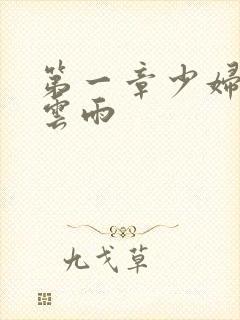 第一章少婦
雲雨
九戈草